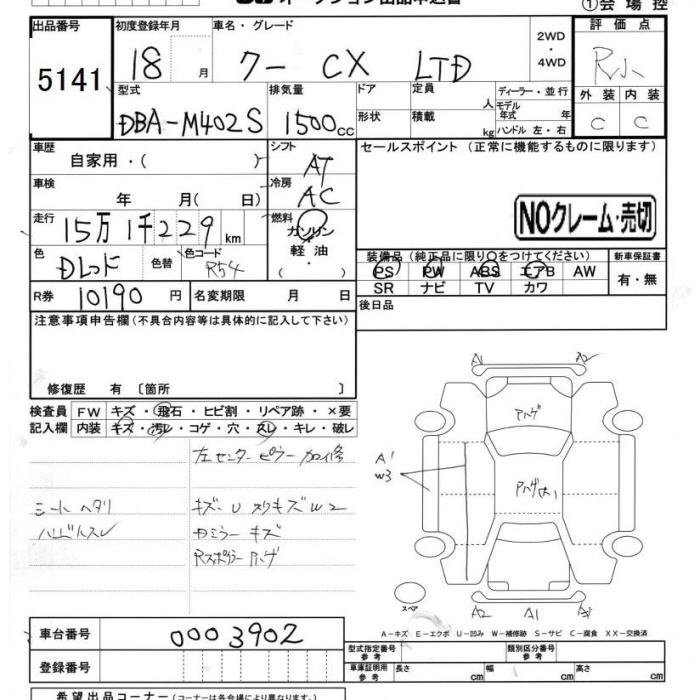 オークション出品申込書
①会場控
出品番号 初度登録年月 車名・グレード 評価点
5141 18 月 クー CX LTD 2WD ・ 4WD R小
型式 排気量 ドア 定員 人 ディーラー・並行 外装 内装
DBA-M402S 1500cc 形状 積載 kg モデル年式 年 ハンドル 左・右 C C
車歴 シフト セールスポイント (正常に機能するものに限ります)
自家用・( ) AT
車検 冷房
年 月( 日) AC
走行 燃料 NOクレーム・売切
15万1千229 km ガソリン
色 色替 色コード 軽油 装備品 (純正品に限り○をつけてください) 新車保証書
Dレッド R54 ・ PS PW ABS エアB AW 有・無
SR ナビ TV カワ
R券 10190 円 名変期限 月 日 後日品
注意事項申告欄(不具合内容等は具体的に記入して下さい)
修復歴 有 [箇所 ]
検査員 FW キズ・飛石・ヒビ割・リペア跡・×要
記入欄 内装 キズ・汚レ・コゲ・穴・スレ・キレ・破レ
左センターピラー加修
シートヘタリ キズ・U スリキズW2
ハンドルスレ Dミラーキズ
Rスポイラーハゲ
A1 A2
アハゲ
A1
W3
アハゲ
スペア
A2 A1
A-キズ E-エクボ U-凹み W-補修跡 S-サビ C-腐食 XX-交換済
車台番号 0003902
型式指定番号 参考 類別区分番号 参考
登録番号 車庫証明用 参考 長さ cm 幅 cm 高さ cm
希望出品コーナー(名称は各会場により異なります。)